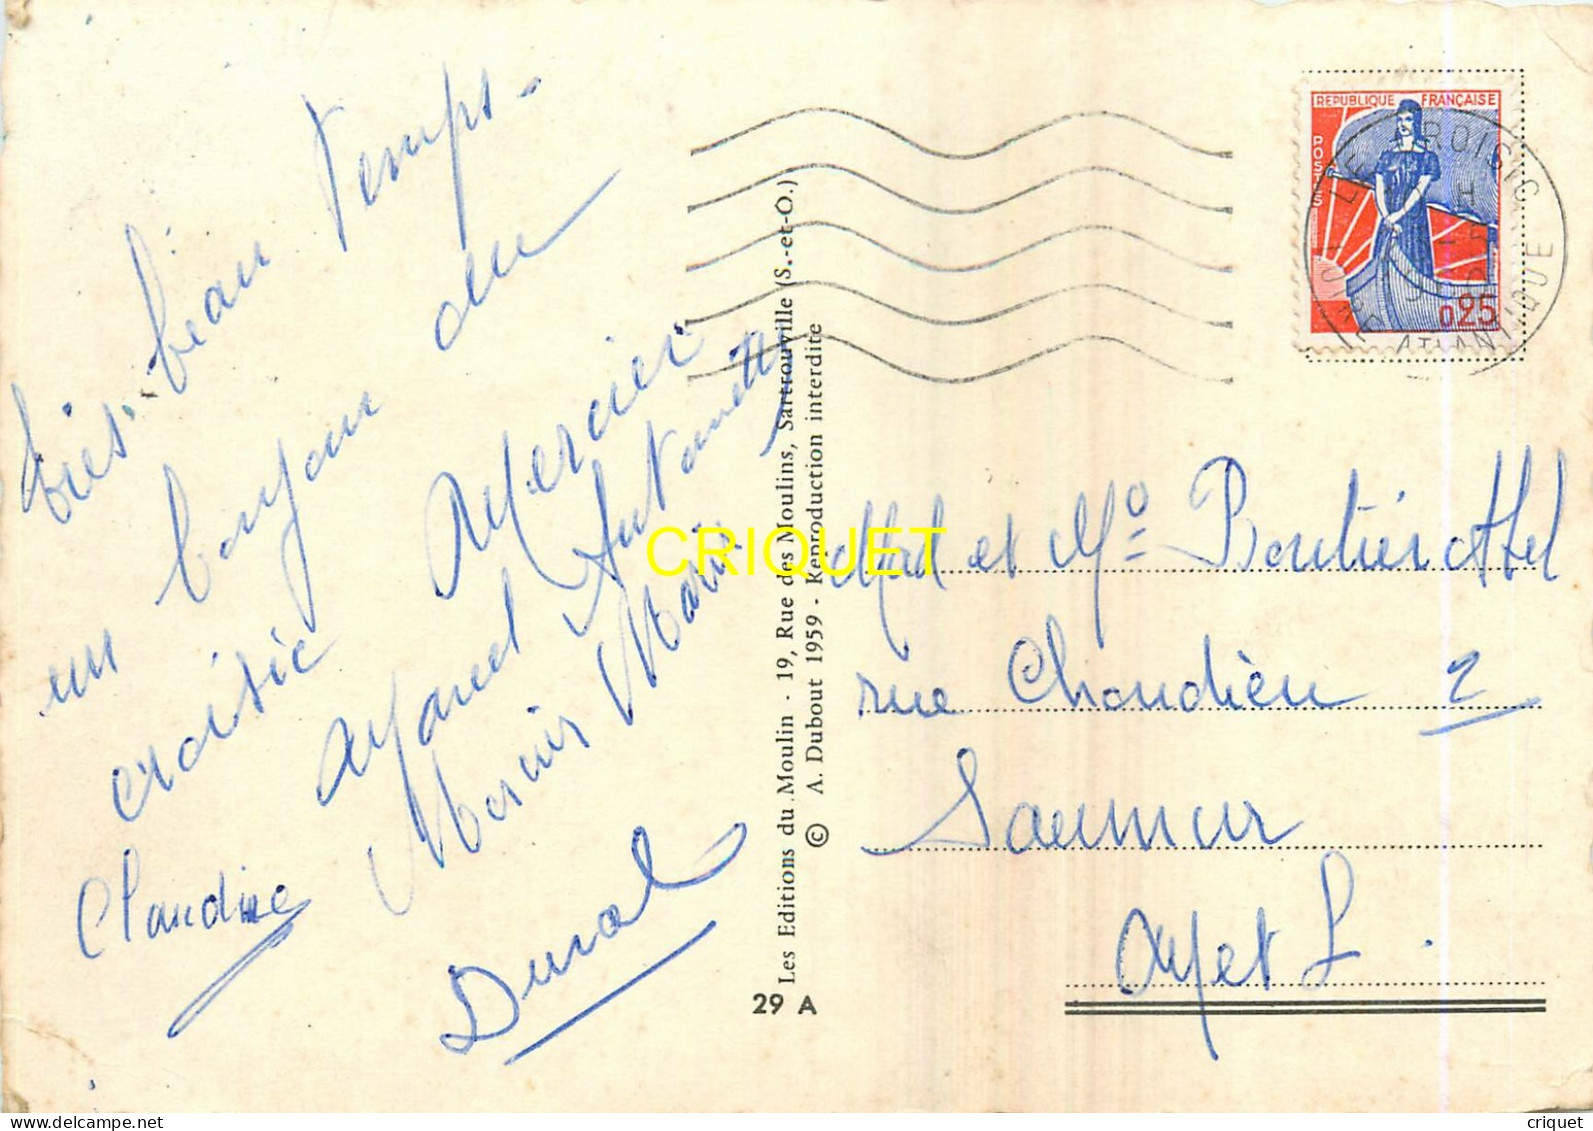 très beau temps.
un bonjour du
croisic Mercier
Marcel Antoinette
Mercier Marie
Claudine
Duval
Les Editions du Moulin - 19, Rue des Moulins, Sartrouville (S.-et-O.)
© A. Dubout 1959 - Reproduction interdite
29 A
CRIQUET
REPUBLIQUE FRANÇAISE
POSTES
0,25
LE CROISIC
ATLANTIQUE
Mad et Mo Boutier Abel
rue Chaudière 2
Saumur
M et L.
criquet
delcampe.net